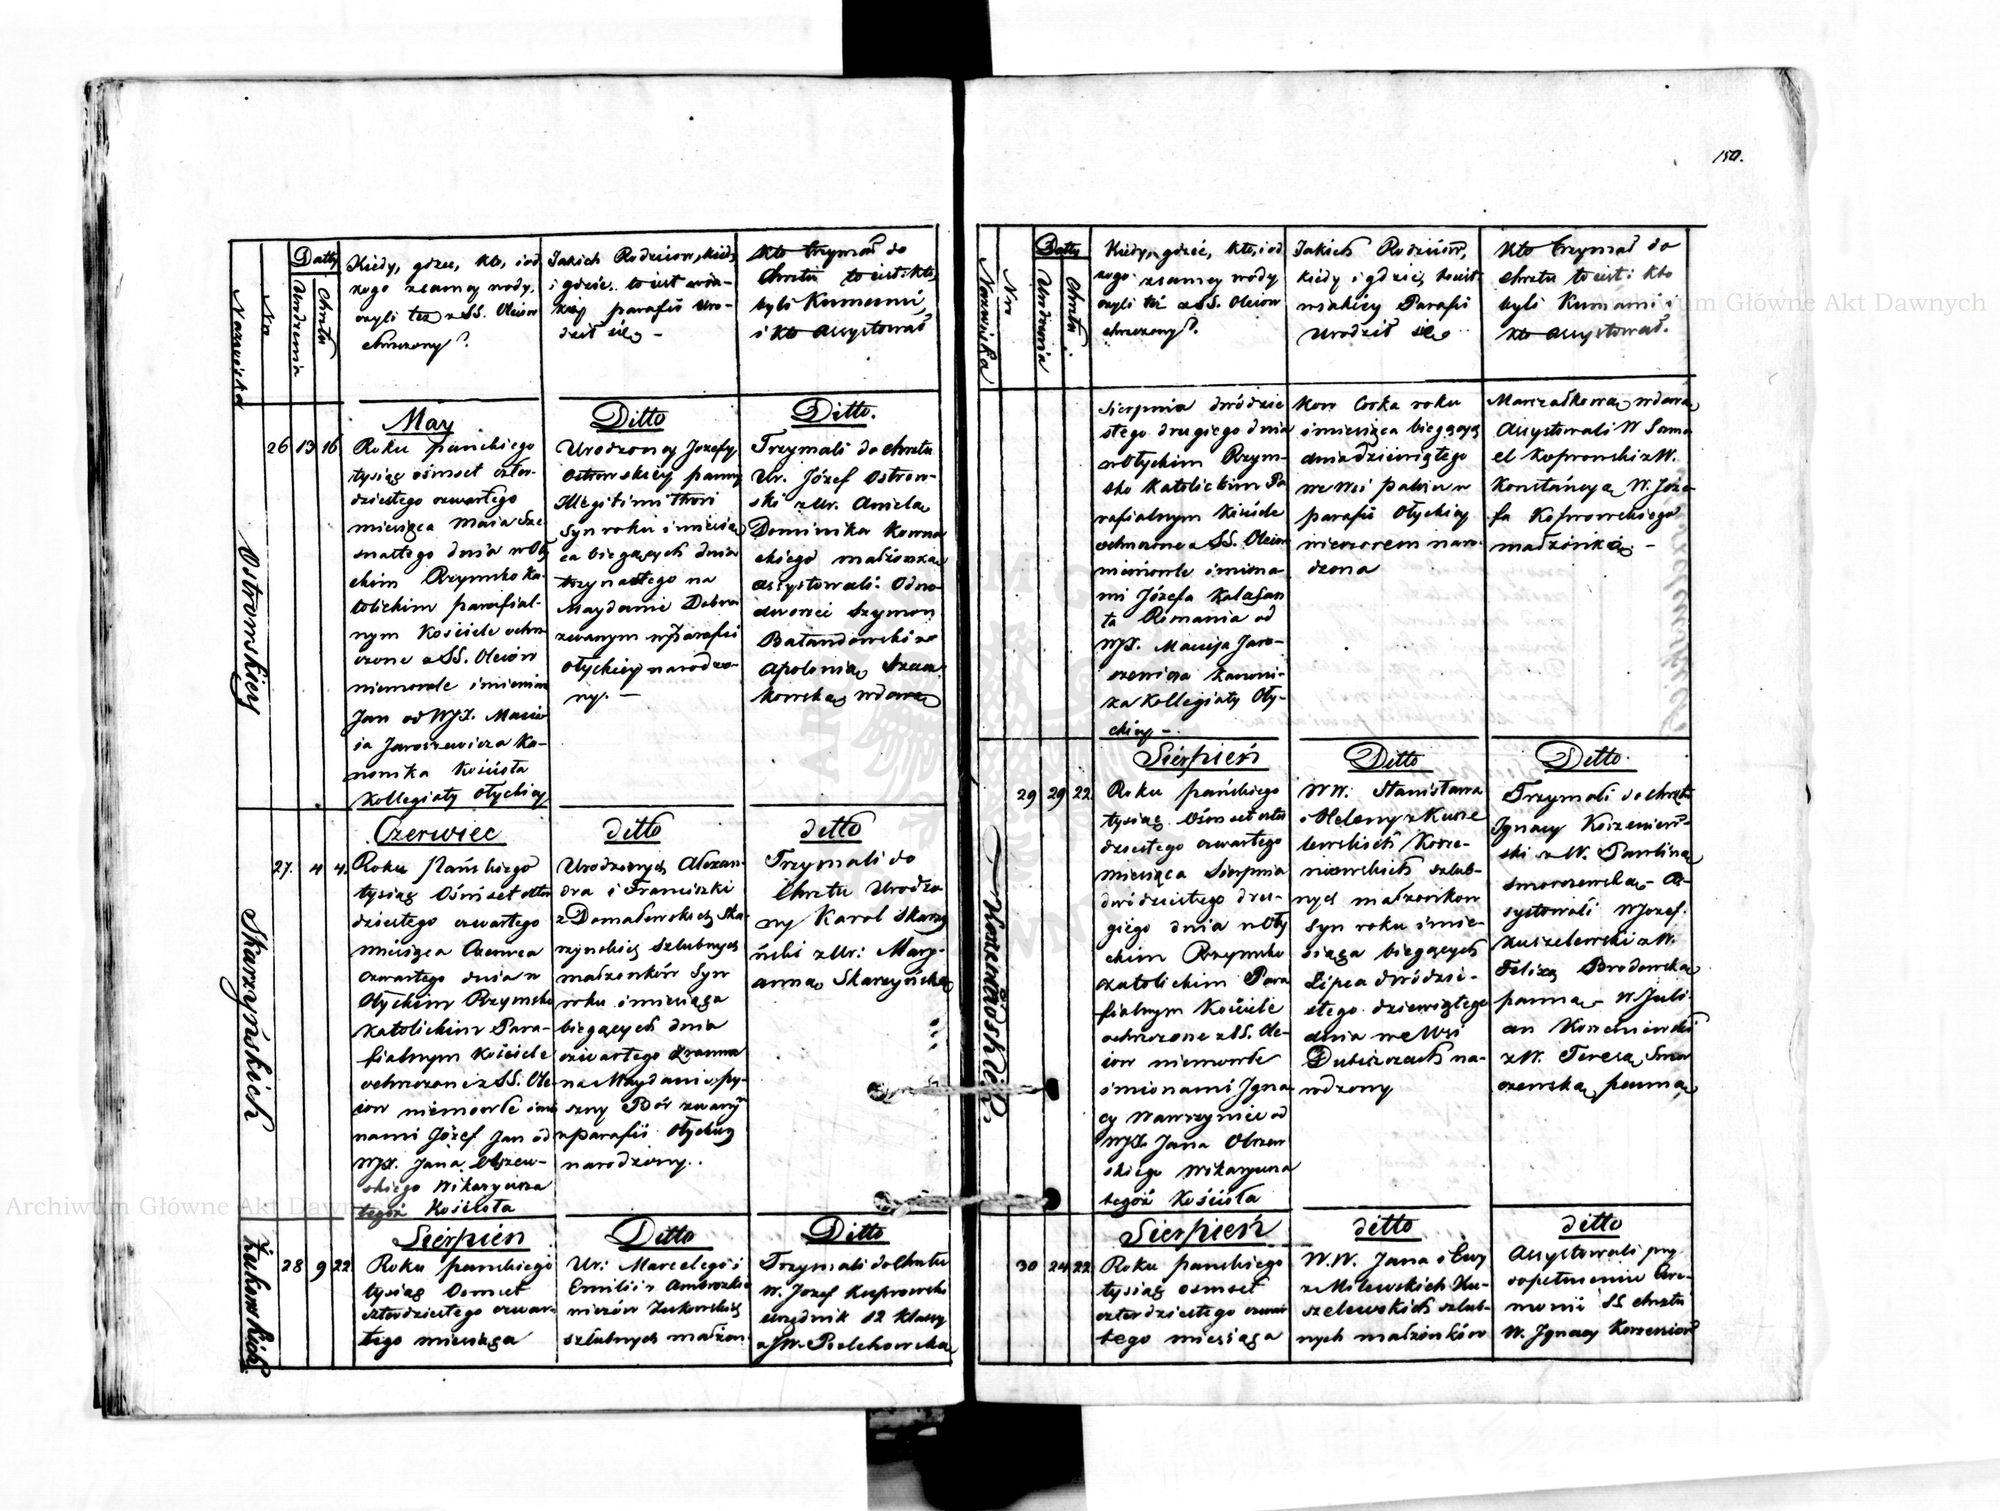 150.
Nazwiska
Nro
Datty
Urodzenia
Chrztu
Kiedy, gdzie, kto, i od
kogo z samey wody,
czyli też z SS. Olejów
chrzczony?
Jakich Rodziców, kiedy
i gdzie, to iest w ja-
kiey parafii Uro-
dził się -
Kto trzymał do
chrztu to iest: kto
byli Kumami,
i kto assystował
Ostrowskiey
26 13 16
May
Roku pańskiego
tysiąc ośmset czter-
dziestego czwartego
miesiąca Maia sze-
snastego dnia w Oły
ckim Rzymsko Ka-
tolickim parafial-
nym Kościele ochrz-
czone z SS. Olejów
niemowle imieniem
Jan od WJX. Macie
ja Jaroszewicza Ka-
nonika Kościoła
Kollegiaty Ołyckiey
Ditto
Urodzoney Jozefy
Ostrowskiey panny
Illegitimi thori
Syn roku i miesią
ca bieżących dnia
trzynastego na
Maydanie Dobra
zwanym w parafii
Ołyckiey narodzo-
ny. -
Ditto.
Trzymali do chrztu
Ur. Józef Ostrow-
ski z Ur. Anielą
Dominika Kowna
ckiego małżonką
assystowali: Odno-
dworzec Szymon
Bałandowski z
Apolonią Szcza
kowską wdową
Skarzyńskich
27. 4 4.
Czerwiec
Roku Pańskiego
tysiąc Ośmset czter
dziestego czwartego
miesiąca Czerwca
czwartego dnia w
Ołyckim Rzymsko
Katolickim Para-
fialnym Kościele
ochrzczone z SS. Ole-
jow niemowle imio
nami Józef Jan od
WJX. Jana Olszew-
skiego Wikaryusza
tegoż Kościoła
ditto
Urodzonych Alexan-
dra i Franciszki
z Domalewskich Ska-
rzynskich szlubnych
małżonków Syn
roku i miesiąca
bieżących dnia
czwartego zranna
na Maydanie py-
szny Bór zwanym
w parafii Ołyckiey
narodzony..
ditto
Trzymali do
Chrztu Urodzo
ny Karol Skarzy
ński z Ur: Mary-
anną Skarzyńską
Żukowskich
28 9 22
Sierpień
Roku pańskiego
tysiąc Osmset
czterdziestego czwar-
tego miesiąca
Ditto
Ur: Marcelego i
Emilii z Ambrożke
wiczów Żukowskich
szlubnych małżon
Ditto
Trzymali do Chrztu
W. Jozef Kuprowski
urzędnik 12 klassy
z JW. Bielchowską
Nazwiska
Nro
Datty
Urodzenia
Chrztu
Kiedy, gdzie, kto, i od
kogo z samey wody
czyli też z SS. Olejów
chrzczony?
Jakich Rodziców,
kiedy i gdzie, to iest
w iakiey Parafii
Urodził się
Kto trzymał do
chrztu to iest: kto
byli Kumami i
kto assystował.
Sierpnia dwódzie
stego drugiego dnia
w Ołyckim Rzym-
sko Katolickim Pa
rafialnym Kościele
ochrzczone z SS. Olejów
niemowle imiona
mi Józefa Kalasan
ta Romania od
WJX. Macieja Jaro-
szewicza Kanoni-
ka Kollegiaty Oły-
ckiey -.
kow Corka roku
i miesiąca bieżących
dnia dziewiątego
we Wsi w
parafii Ołyckiey
wieczorem naro-
dzona
Marszałkową wdową
Assystowali W Samu
el Koprowski z W.
Konstancyą W. Joze-
fa Koprowskiego
małżonką. -
Korzeniowskich
29 29 22
Sierpień
Roku pańskiego
tysiąc Ośmset czter
dziestego czwartego
miesiąca Sierpnia
dwódziestego dru-
giego dnia w Oły
ckim Rzymsko
Katolickim Para
fialnym Kościele
ochrzczone z SS. Ole-
jow niemowle
imionami Igna-
cy Wawrzyniec od
WJX. Jana Olszew
skiego Wikaryusza
tegoż Kościoła
Ditto
WW. Stanisława
i Heleny z Kusze
lewskich Korze-
niowskich szlub-
nych małżonkow
Syn roku i mie-
siąca bieżących
Lipca dwódzie-
stego dziewiątego
dnia we Wsi
na-
rodzony
Ditto.
Trzymali do chrztu
Ignacy Korzeniow-
ski z W. Pauliną
Smorczewską - As-
systowali W Jozef
Kuszelewski z W.
Felixą Brodowską
panną - W. Juli-
an Korzeniowski
z W. Teresą Smor
czewską panną
30 24 22
Sierpień
Roku pańskiego
tysiąc osmset
czterdziestego czwar
tego miesiąca
ditto
W.W. Jana i Ewy
z Milewskich Ku-
szelewskich szlub-
nych małżonków
ditto
Assystowali przy
dopełnieniu Cere-
monii SS chrztu
W. Ignacy Korzeniow
Archiwum Główne Akt Dawnych
Archiwum Główne Akt Dawnych